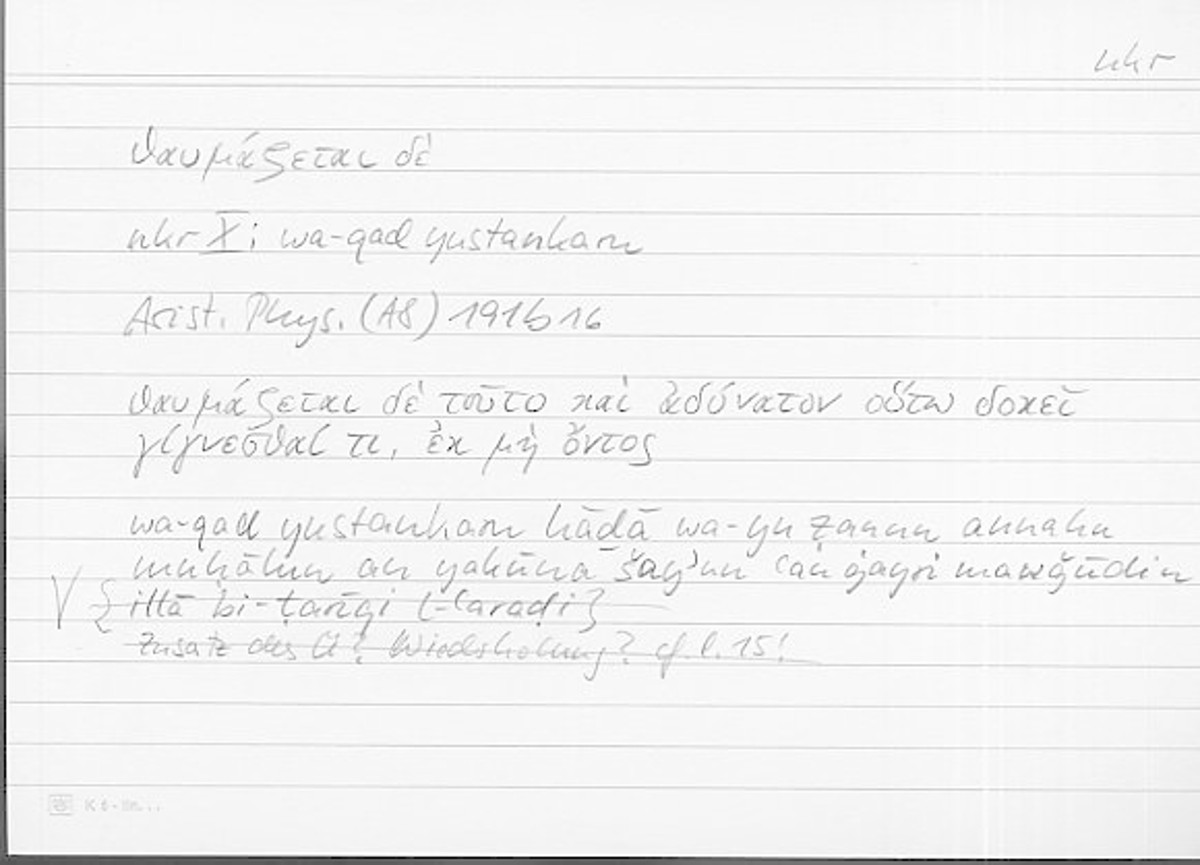 nkr
θαυμάζεται δὲ
nkr X; wa-qad yustankaru
Arist. Phys. (A8) 191b16
θαυμάζεται δὲ τοῦτο καὶ ἀδύνατον οὕτω δοκεῖ
γίγνεσθαί τι, ἐκ μὴ ὄντος
wa-qad yustankaru hāḏā wa-yuẓannu annahu
muḥālun an yakūna šayʾun ʿan ġayri mawǧūdin
{illā bi-ṭarīqi l-ʿaraḍi}
Zusatz des Ü? Wiederholung? cf. l. 15!